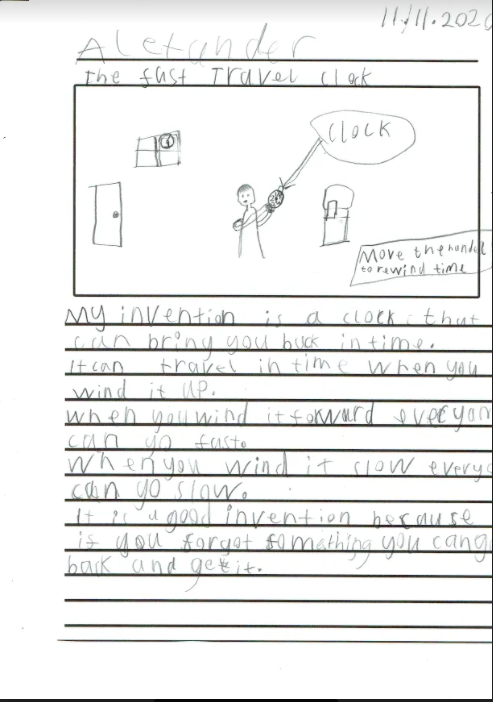 11/11.2020
Alexander
The fast Travel clock
clock
Move the handel
to rewind time
My invention is a clock that
can bring you back in time.
It can travel in time when you
wind it up.
when you wind it forward everyon
can go fast.
When you wind it slow everyo
can go slow.
It is a good invention because
if you forgot somathing you can go
back and get it.